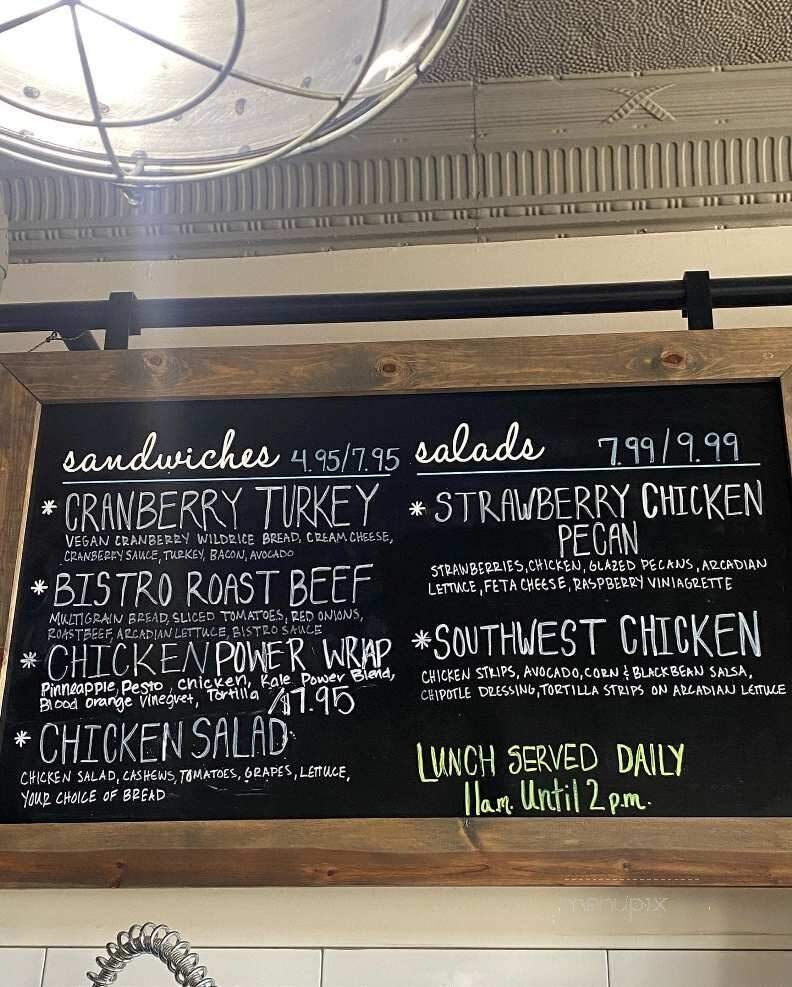 sandwiches 4.95/7.95
* CRANBERRY TURKEY
VEGAN CRANBERRY WILDRICE BREAD, CREAM CHEESE,
CRANBERRY SAUCE, TURKEY, BACON, AVOCADO
* BISTRO ROAST BEEF
MULTIGRAIN BREAD, SLICED TOMATOES, RED ONIONS,
ROASTBEEF, ARCADIAN LETTUCE, BISTRO SAUCE
* CHICKEN POWER WRAP
Pinneapple Pesto, chicken, Kale Power Blend,
Blood orange Vinegret, Tortilla /$7.95
* CHICKEN SALAD
CHICKEN SALAD, CASHEWS, TOMATOES, GRAPES, LETTUCE,
YOUR CHOICE OF BREAD
salads 7.99/9.99
* STRAWBERRY CHICKEN
PECAN
STRAWBERRIES, CHICKEN, GLAZED PECANS, ARCADIAN
LETTUCE, FETA CHEESE, RASPBERRY VINIAGRETTE
* SOUTHWEST CHICKEN
CHICKEN STRIPS, AVOCADO, CORN & BLACKBEAN SALSA,
CHIPOTLE DRESSING, TORTILLA STRIPS ON ARCADIAN LETTUCE
LUNCH SERVED DAILY
11a.m. Until 2 p.m.
menupix